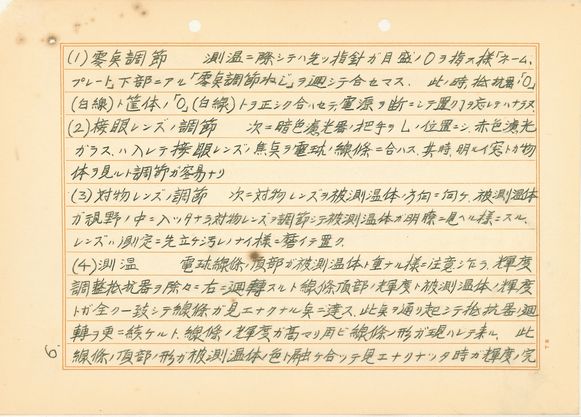 (1) 零点調節 測温ニ際シテハ先ヅ指針ガ目盛ノ0ヲ指ス様「ネーム、
プレート」下部ニアル「零点調節ねじ」ヲ廻シテ合セマス. 此ノ時、抵抗器ノ「0」
(白線)ト筐体ノ「0」(白線)トヲ正シク合ハセテ電源ヲ断ニシテ置クヲ忘レテハナラヌ
(2) 接眼レンズノ調節 次ニ暗色濾光器ノ把手ヲLノ位置ニシ、赤色濾光
ガラスハ入レテ接眼レンズノ焦点ヲ電球ノ線條ニ合ハス、其時、明ルイ窓トカ物
体ヲ見ルト調節ガ容易ナリ
(3) 対物レンズノ調節 次ニ対物レンズヲ被測温体ノ方向ニ向ケ、被測温体
ガ視野ノ中ニ入ッタナラ対物レンズヲ調節シテ被測温体ガ明瞭ニ見ヘル様ニスル.
レンズハ測定ニ先立ケ汚レノナイ様ニ拭イテ置ク.
(4) 測温 電球線條ノ頂部ガ被測温体ト重ナル様ニ注意シナラ、輝度
調整抵抗器ヲ除々ニ右ニ廻轉スルト線條頂部ノ輝度ト被測温体ノ輝度
トガ全ク一致シテ線條ガ見エナクナル点ニ達ス. 此点ヲ通リ起シテ抵抗器ノ廻
轉ヲ更ニ続ケルト、線條ノ輝度ガ高マリ再ビ線條ノ形ガ現ハレテ来ル. 此
線條ノ頂部ノ形ガ被測温体ノ色ト融ケ合ッテ見エナクナッタ時ガ輝度ノ完
6.